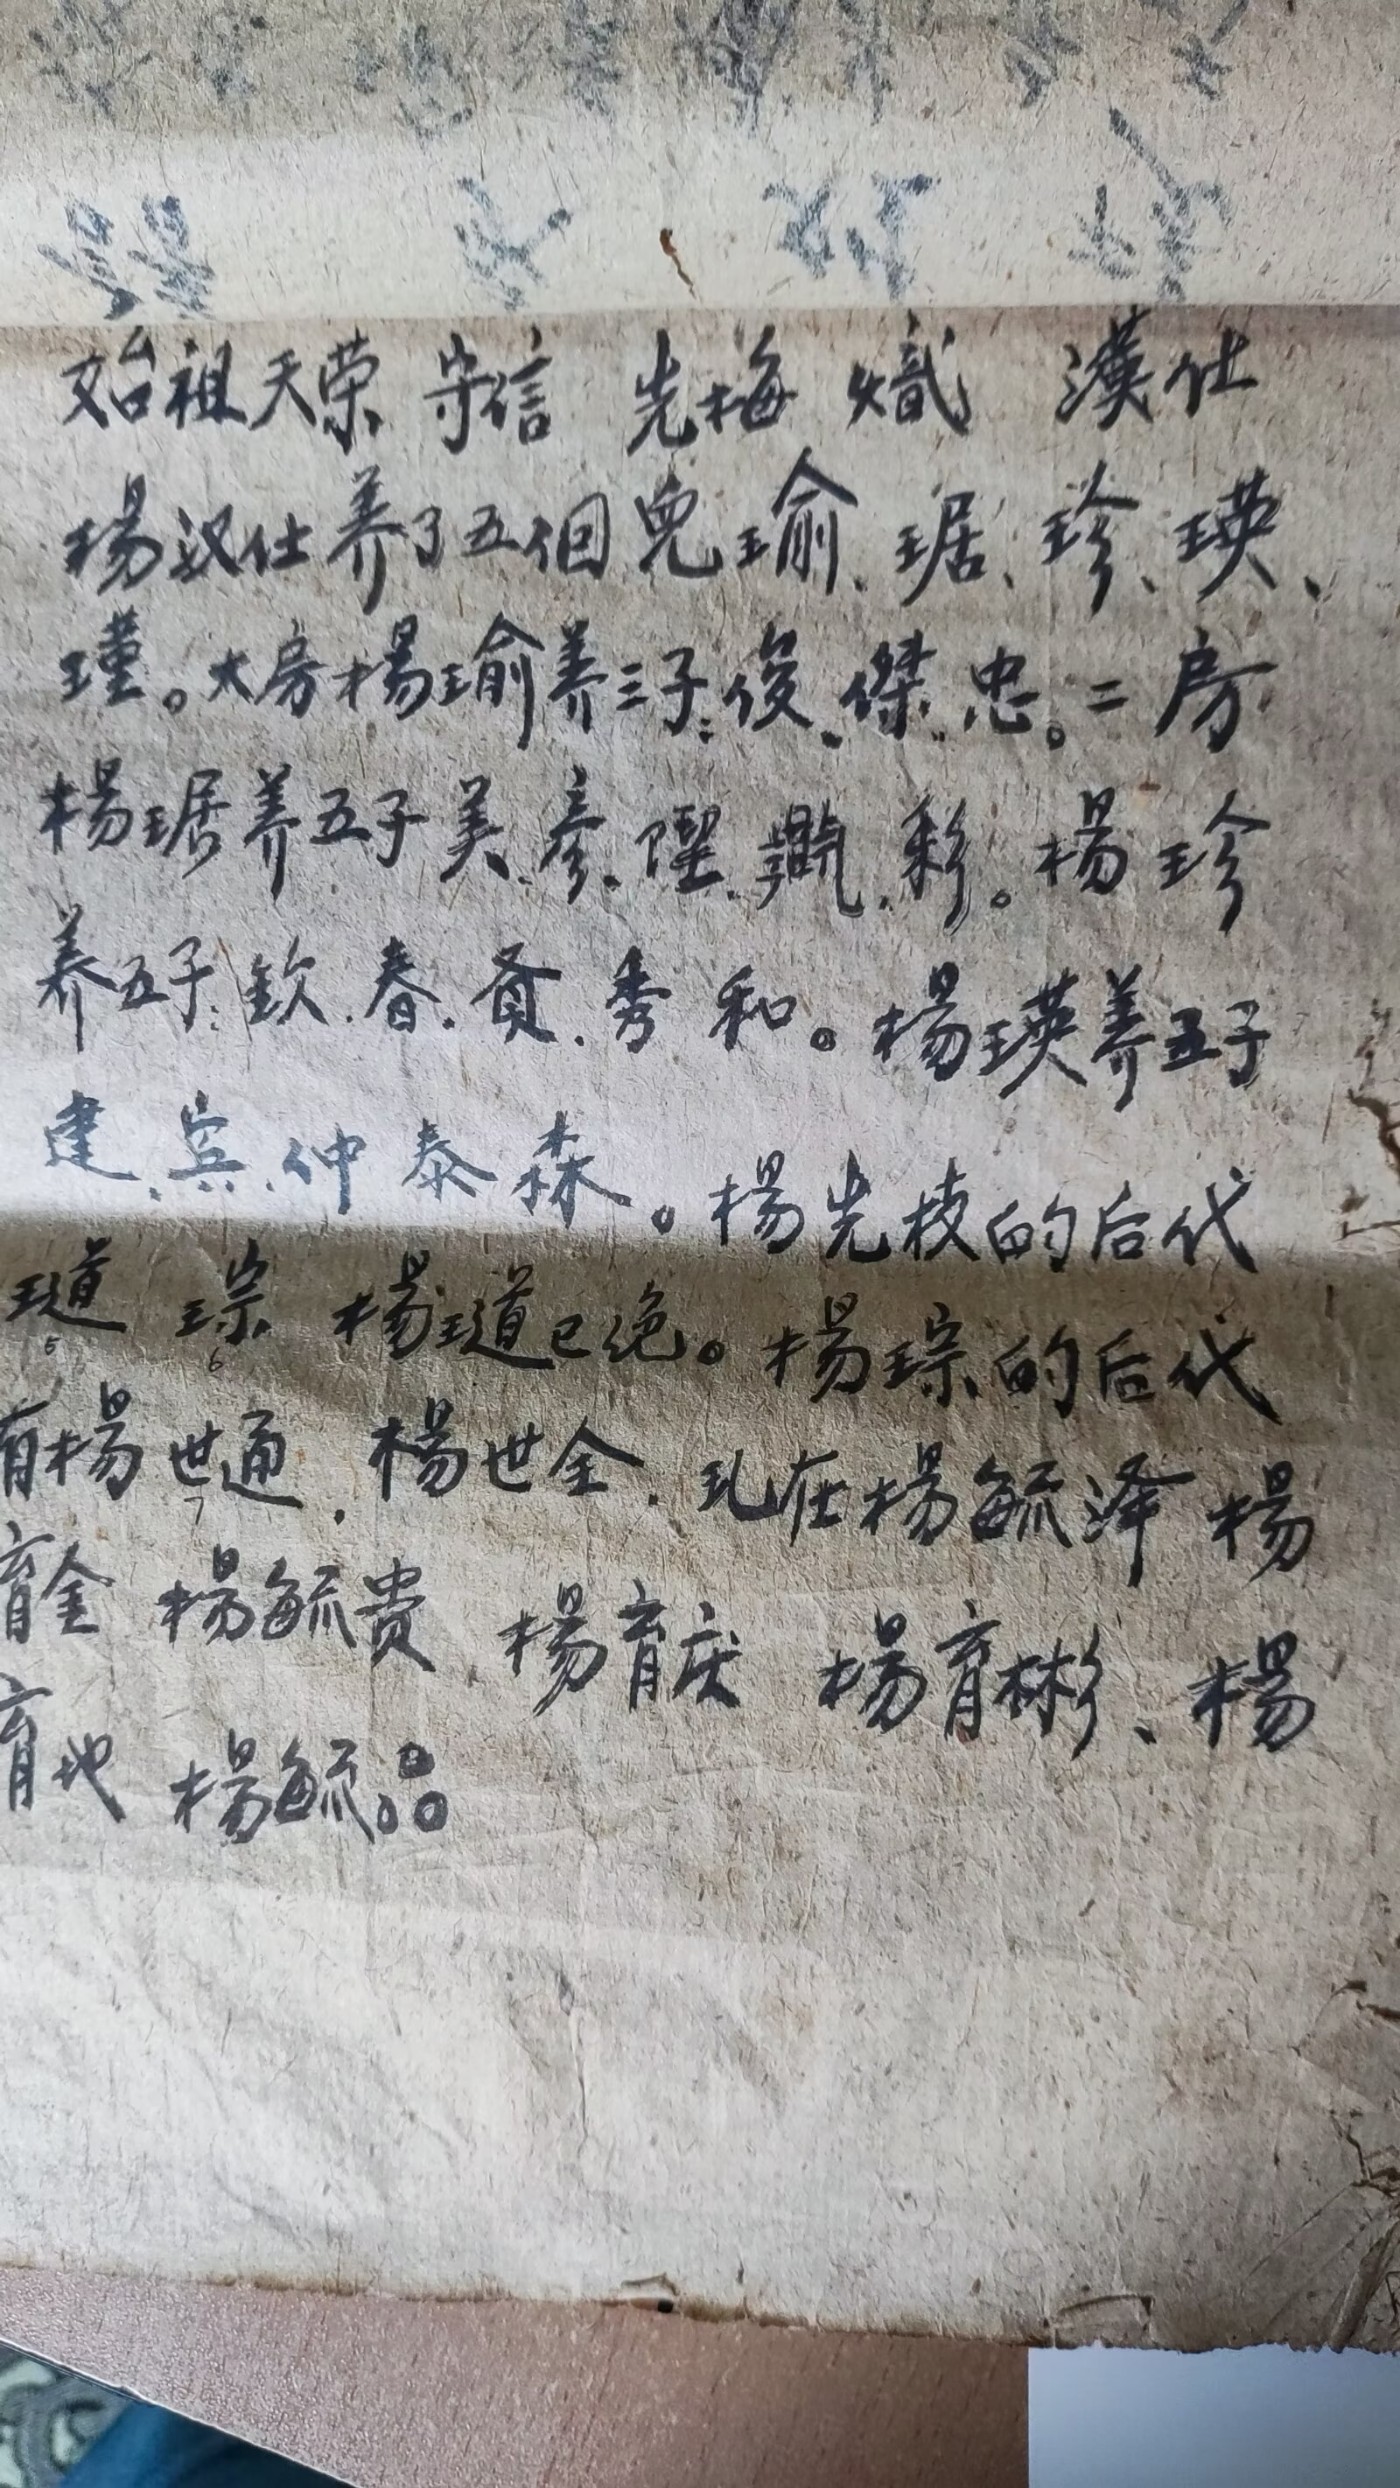 始祖天荣 守信 先梅 熾 漢仕
楊汉仕养了五個児瑜、琚、珍、瑛、
瑾。大房楊瑜养三子:俊.傑.忠。二房
楊琚养五子美.彦.彩。楊珍
养五子:欽.春.贠.秀和。楊瑛养五子
建.宾.仲泰森。楊先枝的后代
璡5 琮6 楊璡已绝。楊琮的后代
有楊世通7.楊世全.现在楊毓泽 楊
育金 楊毓贵 楊育庆 楊育彬、楊
育地 楊毓品